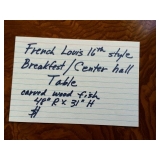 French Louis 16th style
Breakfast/Center hall
Table
carved wood fish
48" R x 31" H
#